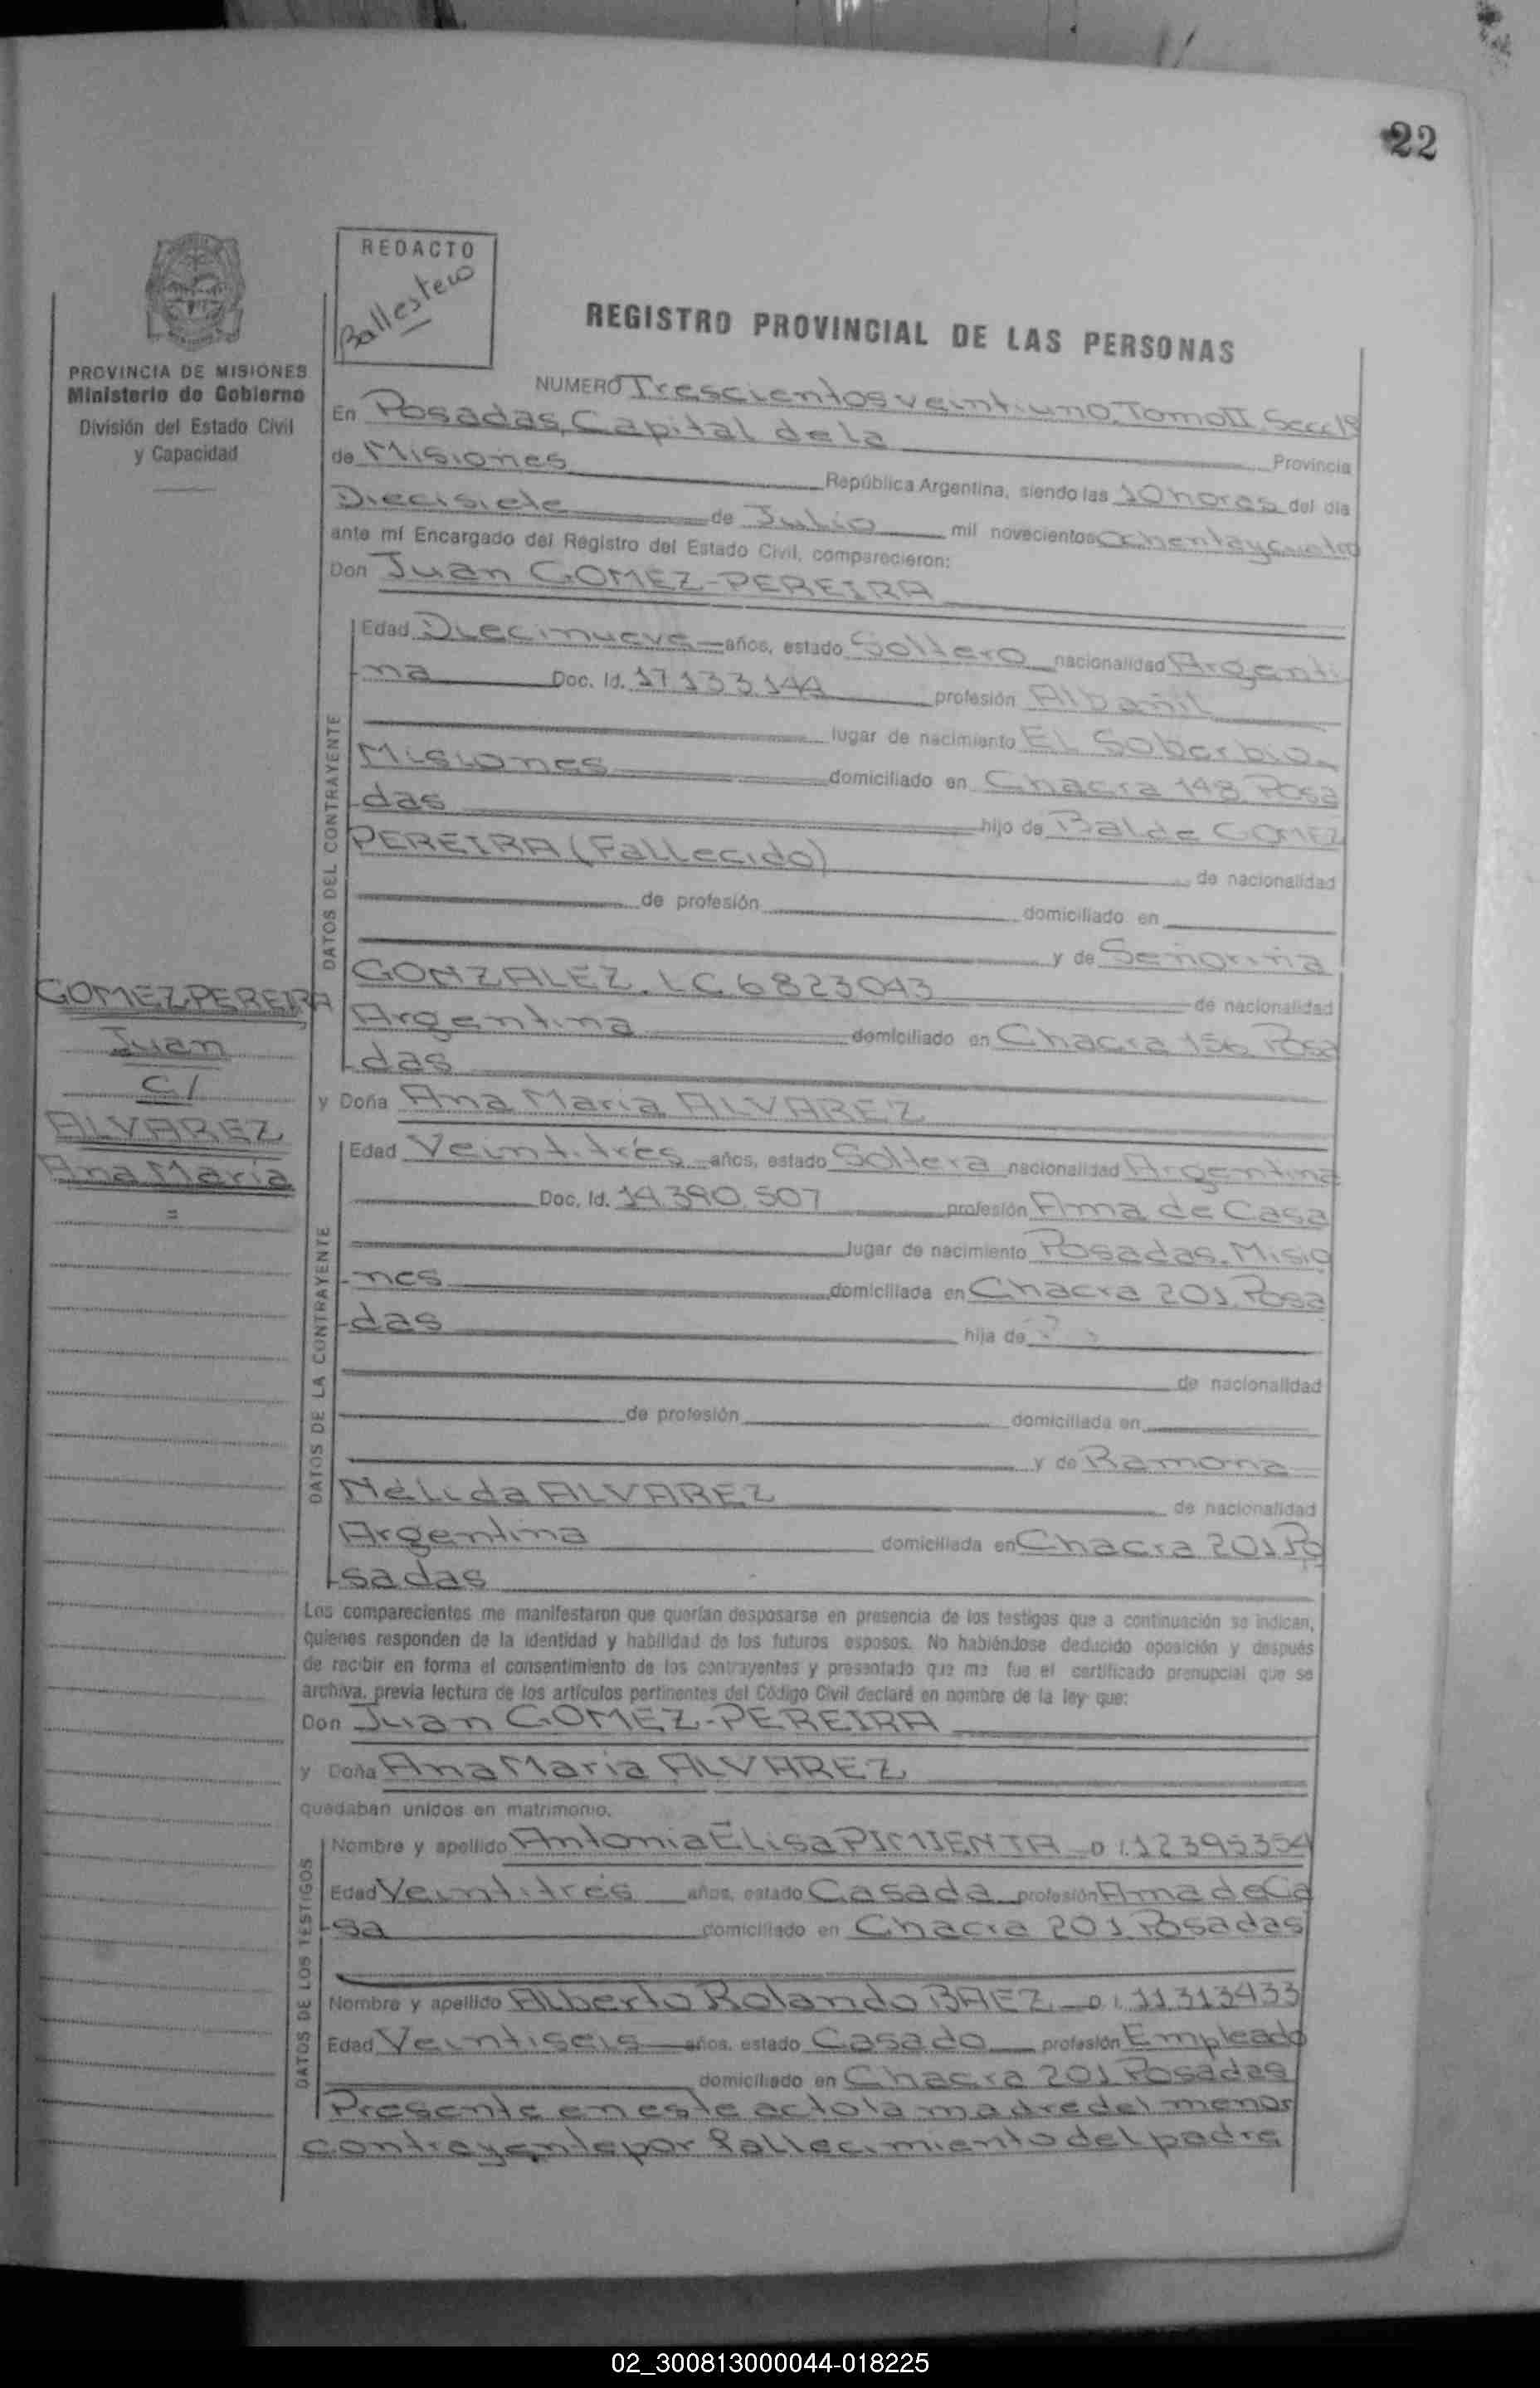 22
REDACTO
Ballestero
PROVINCIA DE MISIONES
Ministerio de Gobierno
División del Estado Civil
y Capacidad
REGISTRO PROVINCIAL DE LAS PERSONAS
NUMERO Trescientos veintiuno. Tomo II. Secc 1ª
En Posadas, Capital de la Provincia
de Misiones República Argentina, siendo las 10 horas del día
Diecisiete de Julio mil novecientos ochenta y cuatro
ante mí Encargado del Registro del Estado Civil, comparecieron:
Don Juan GOMEZ-PEREIRA
DATOS DEL CONTRAYENTE
Edad Diecinueve años, estado Soltero nacionalidad Argenti
na Doc. Id. 17.133.144 profesión Albañil
lugar de nacimiento El Soberbio
Misiones domiciliado en Chacra 148. Posa
das hijo de Balde GOMEZ
PEREIRA (Fallecido) de nacionalidad
de profesión domiciliado en
y de Señorina
GONZALEZ. LC 6823043 de nacionalidad
Argentina domiciliado en Chacra 156 Posa
das
GOMEZ PEREIRA
Juan
C/
ALVAREZ
Ana María
=
y Doña Ana María ALVAREZ
DATOS DE LA CONTRAYENTE
Edad Veintitrés años, estado Soltera nacionalidad Argentina
Doc. Id. 14.390.507 profesión Ama de Casa
lugar de nacimiento Posadas. Misio
nes domiciliada en Chacra 201. Posa
das hija de
de nacionalidad
de profesión domiciliada en
y de Ramona
Nélida ALVAREZ de nacionalidad
Argentina domiciliada en Chacra 201 Po
sadas
Los comparecientes me manifestaron que querían desposarse en presencia de los testigos que a continuación se indican,
quienes responden de la identidad y habilidad de los futuros esposos. No habiéndose deducido oposición y después
de recibir en forma el consentimiento de los contrayentes y presentado que me fue el certificado prenupcial que se
archiva, previa lectura de los artículos pertinentes del Código Civil declaré en nombre de la ley que:
Don Juan GOMEZ-PEREIRA
y Doña Ana María ALVAREZ
quedaban unidos en matrimonio.
DATOS DE LOS TESTIGOS
Nombre y apellido Antonia Elisa PIMIENTA D.I. 12395354
Edad Veintitrés años, estado Casada profesión Ama de Ca
sa domiciliado en Chacra 201. Posadas
Nombre y apellido Alberto Rolando BAEZ D.I. 11313433
Edad Veintiseis años, estado Casado profesión Empleado
domiciliado en Chacra 201 Posadas
Presente en este acto la madre del menor
contrayente por fallecimiento del padre
02_300813000044-018225